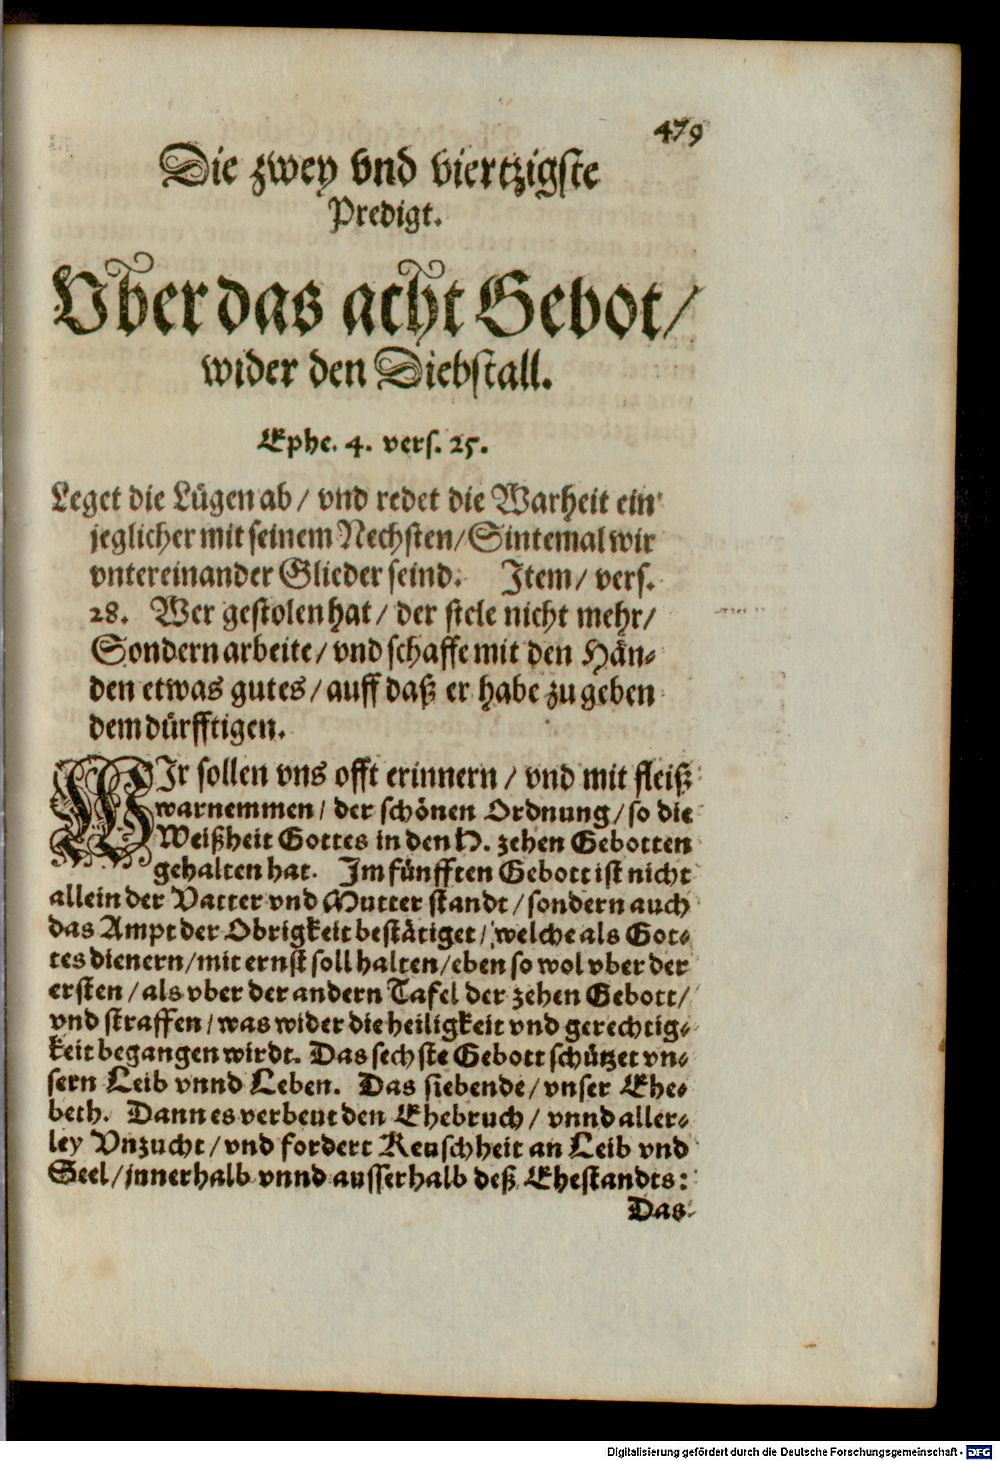 479
Die zwey vnd viertzigste
Predigt.
Vber das acht Gebot/
wider den Diebstall.
Ephe. 4. vers. 25.
Leget die Lügen ab / vnd redet die Warheit ein
jeglicher mit seinem Nechsten/ Sintemal wir
vntereinander Glieder seind. Item/ vers.
28. Wer gestolen hat / der stele nicht mehr/
Sondern arbeite/ vnd schaffe mit den Hän-
den etwas gutes / auff daß er habe zu geben
dem dürfftigen.
WIr sollen vns offt erinnern / vnd mit fleiß
warnemmen/ der schönen Ordnung/ so die
Weißheit Gottes in den H. zehen Gebotten
gehalten hat. Im fünfften Gebott ist nicht
allein der Vatter vnd Mutter standt/ sondern auch
das Ampt der Obrigkeit bestätiget/ welche als Got-
tes dienern/ mit ernst soll halten/ eben so wol vber der
ersten / als vber der andern Tafel der zehen Gebott/
vnd straffen/ was wider die heiligkeit vnd gerechtig-
keit begangen wirdt. Das sechste Gebott schützet vn-
sern Leib vnnd Leben. Das siebende/ vnser Ehe-
beth. Dann es verbeut den Ehebruch / vnnd aller-
ley Vnzucht/ vnd fordert Keuschheit an Leib vnd
Seel/ innerhalb vnnd ausserhalb deß Ehestandts:
Das
Digitalisierung gefördert durch die Deutsche Forschungsgemeinschaft - DFG